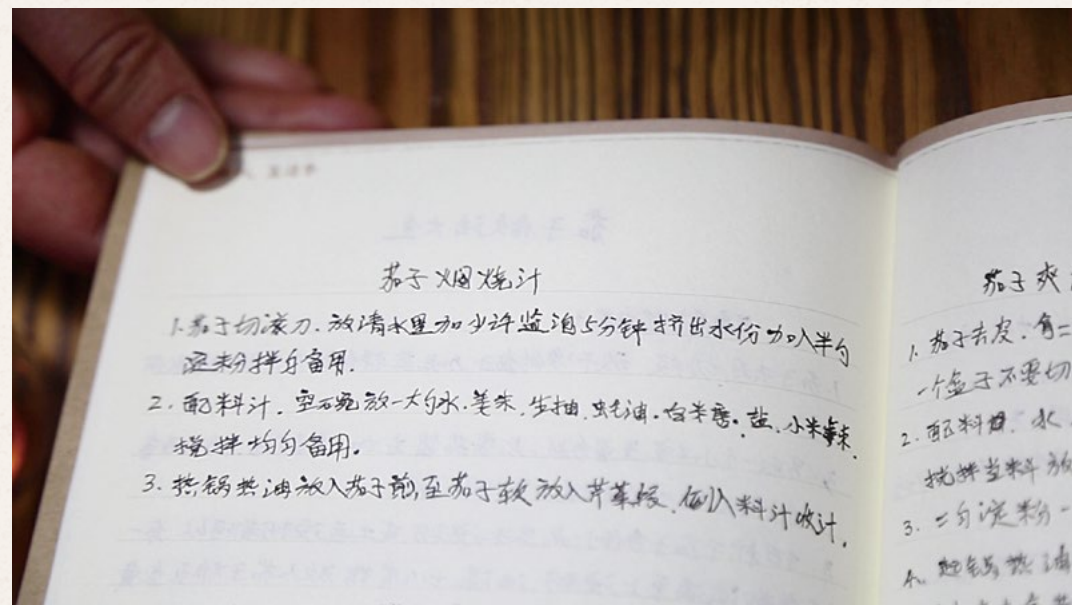 茄子烟烧汁
1.茄子切滚刀.放清水里加少许盐泡5分钟挤出水份加入半勺
淀粉拌匀备用.
2.配料汁.空碗放一大勺水.姜末.生抽.蚝油.白米醋.盐.小米椒末.
搅拌均匀备用。
3.热锅热油放入茄子煎至茄子软放入芹菜段.倒入料汁收汁.
茄子爽
1.茄子去皮.
一个盒子不要切
2.配料
搅拌
3.二勺淀粉一
4.起锅热油